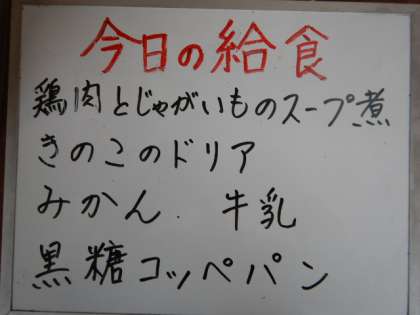 今日の給食
鶏肉とじゃがいものスープ煮
きのこのドリア
みかん. 牛乳
黒糖コッペパン